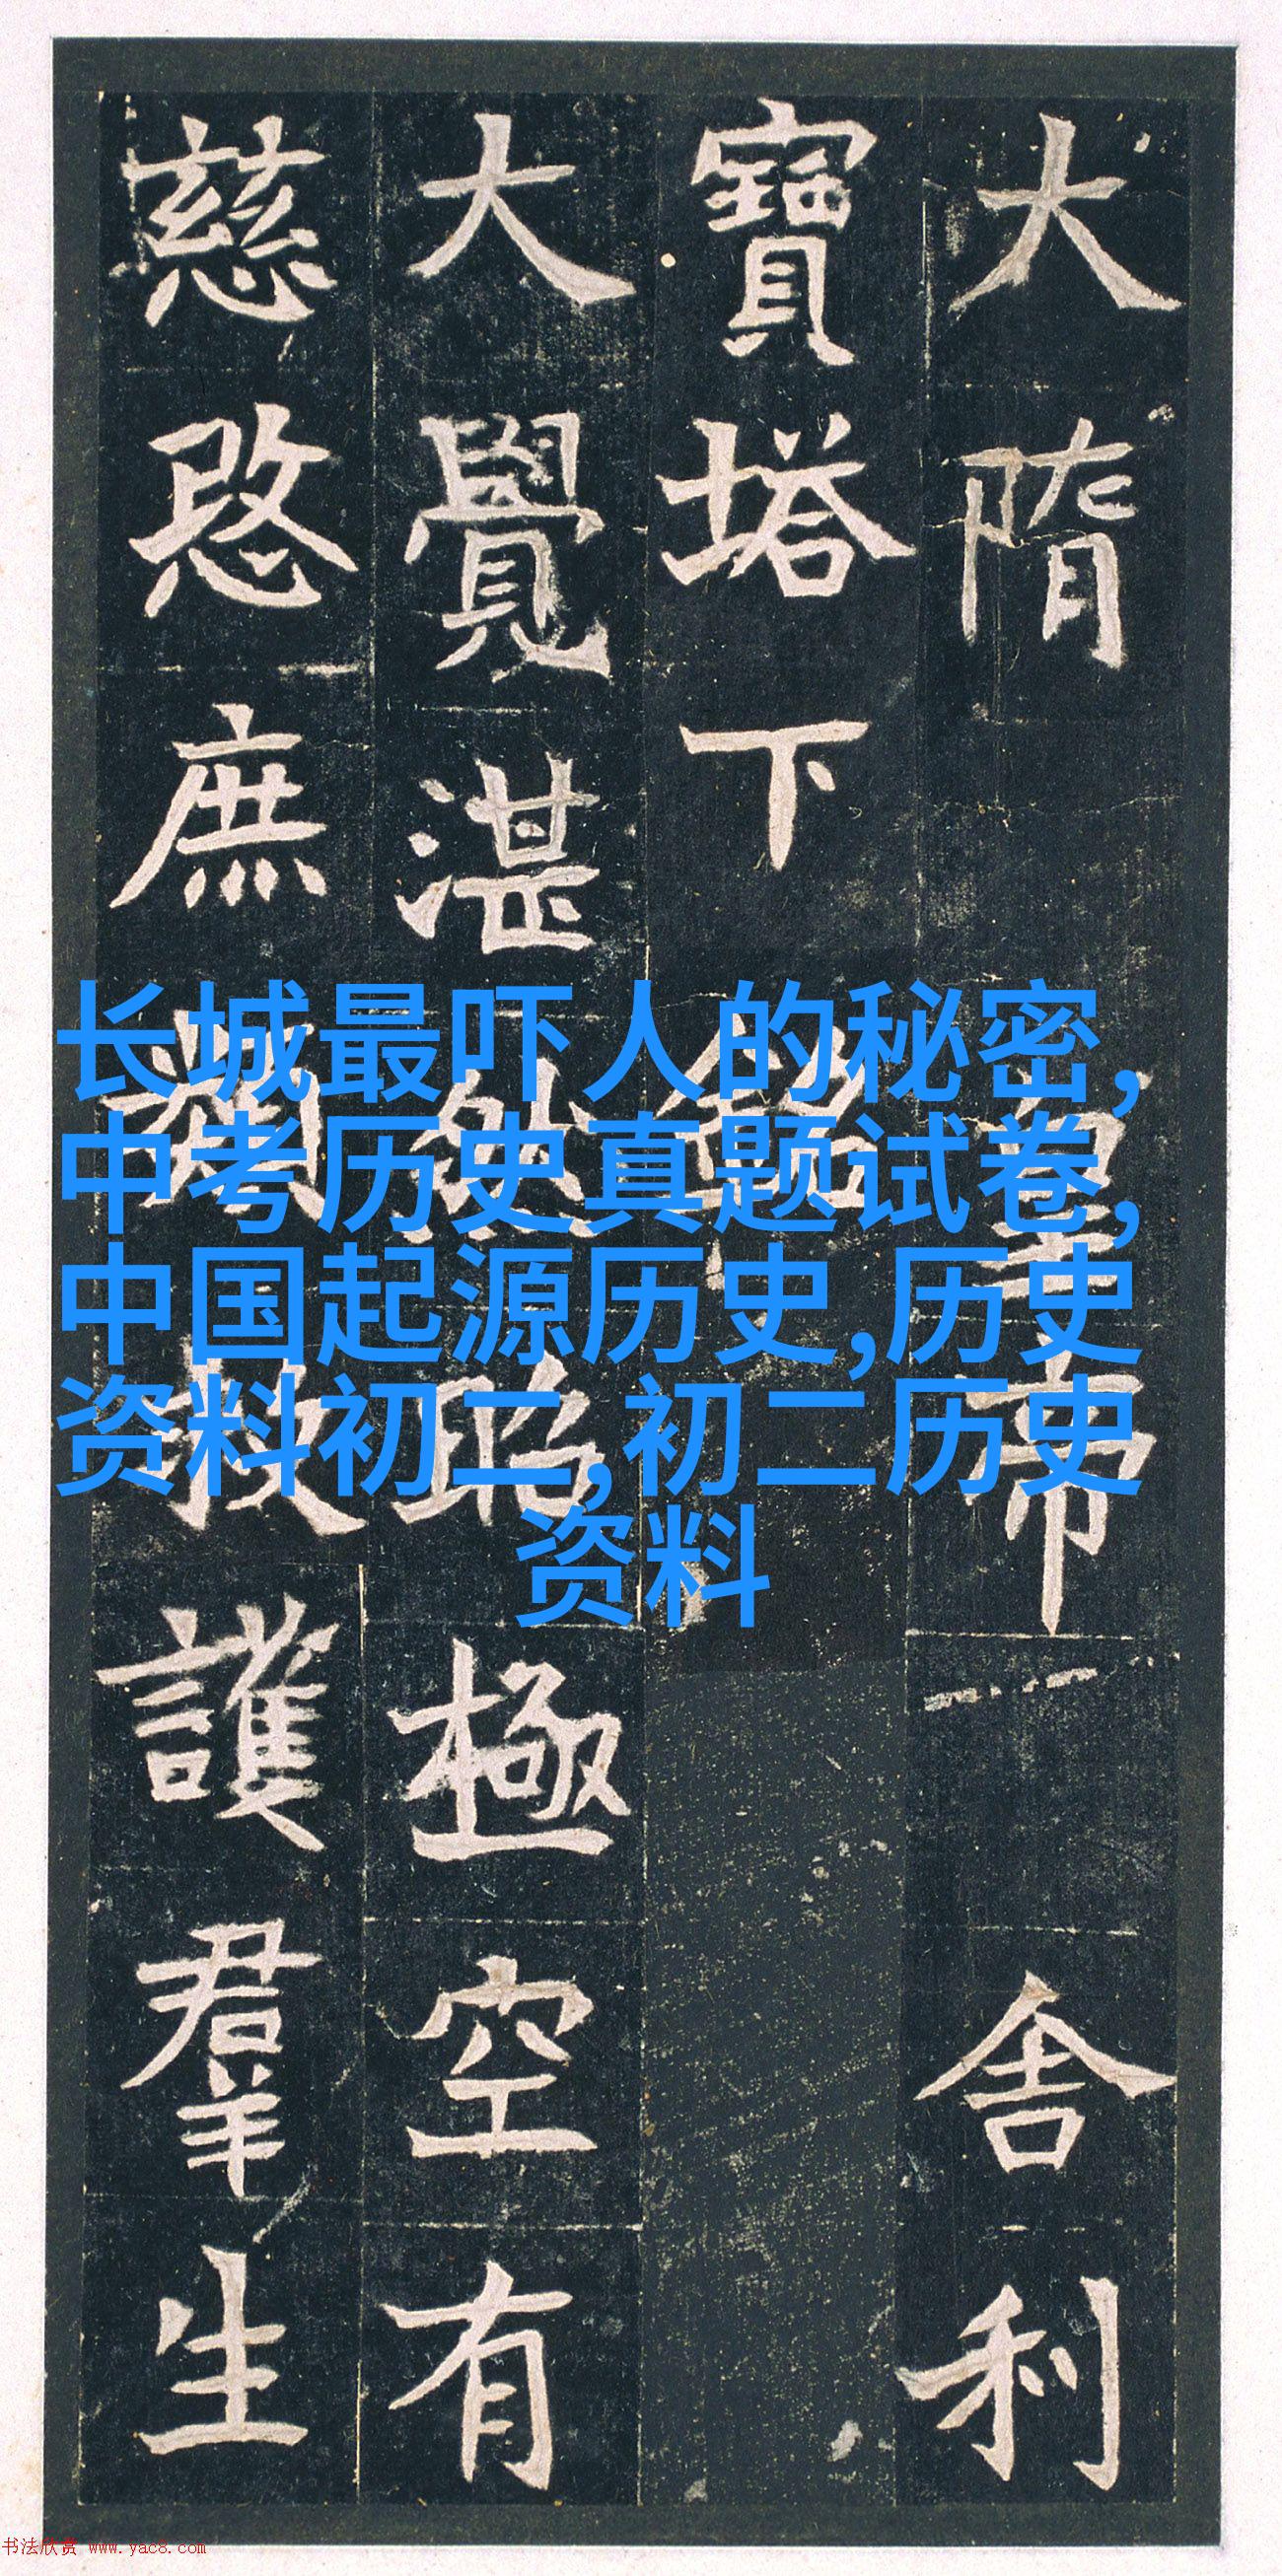 大隋皇帝舍利
寶塔下銘
大覺湛然昭極空有
慈愍庶類救護羣生
长城最吓人的秘密,
中考历史真题试卷,
中国起源历史,历史
资料初二,初二历史
资料
书法欣赏 www.yac8.com